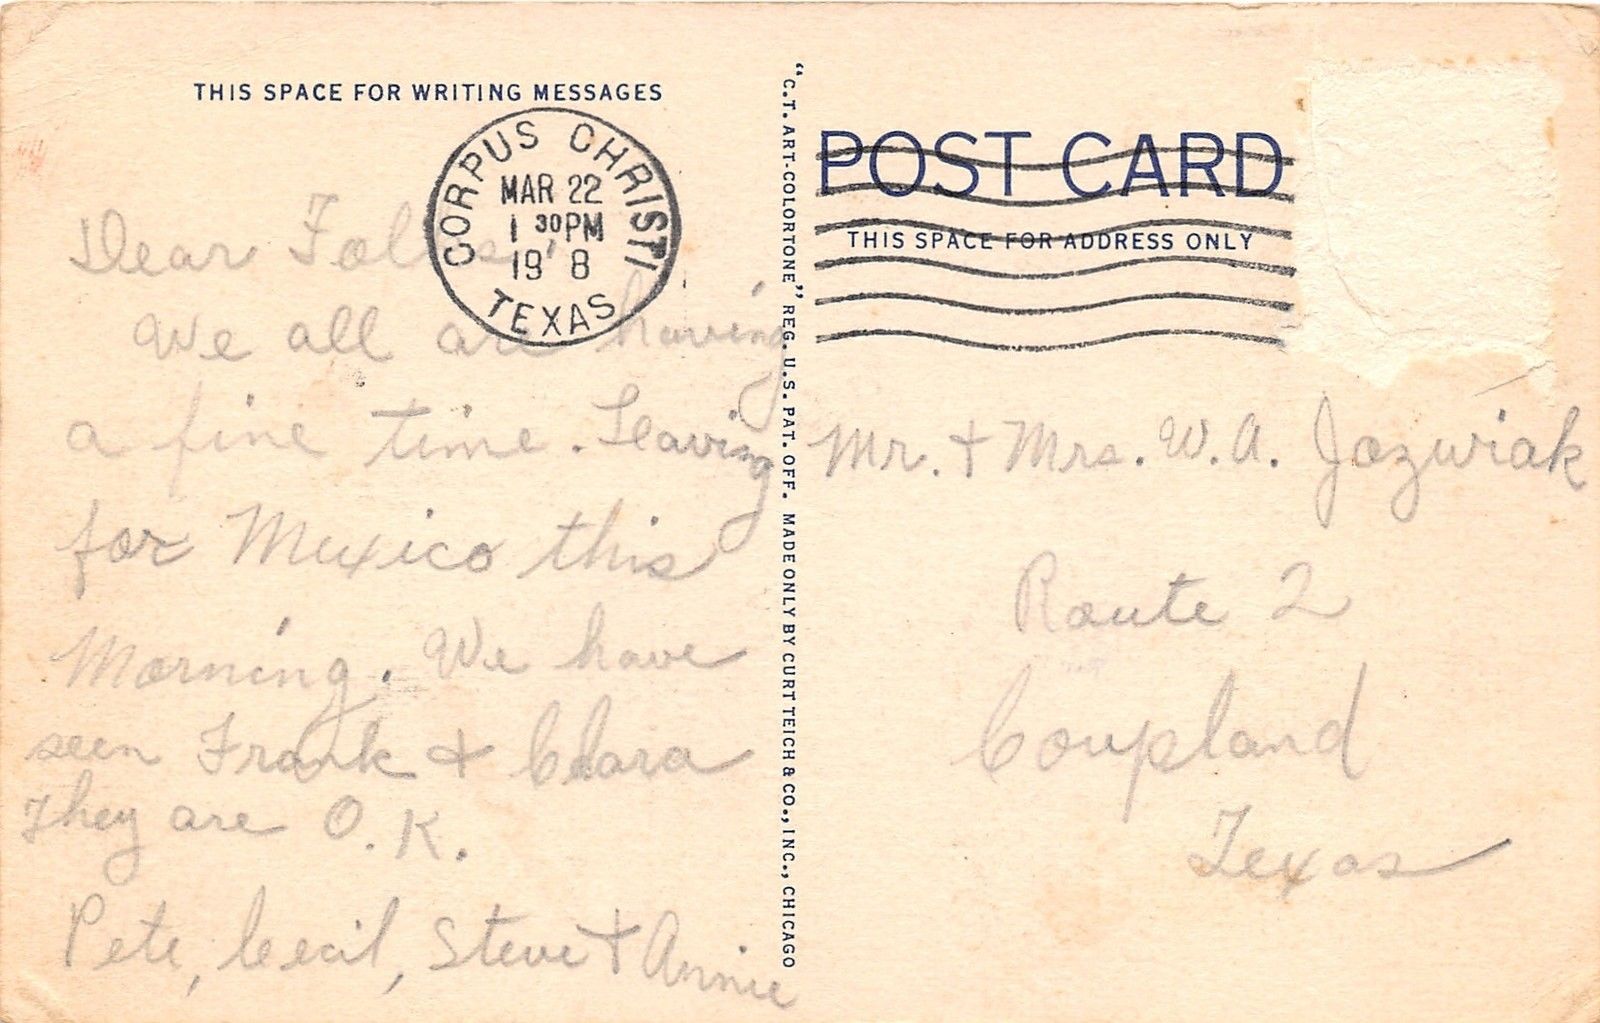 THIS SPACE FOR WRITING MESSAGES
CORPUS CHRISTI
MAR 22
1 30PM
19 8
TEXAS
Dear Folks,
We all are having
a fine time. Leaving
for Mexico this
Morning. We have
seen Frank & Clara
They are O.K.
Pete, Cecil, Steve & Annie
"C.T. ART-COLORTONE" REG. U.S. PAT. OFF. MADE ONLY BY CURT TEICH & CO., INC., CHICAGO
POST CARD
THIS SPACE FOR ADDRESS ONLY
Mr. & Mrs. W.A. Jozwiak
Route 2
Coupland
Texas